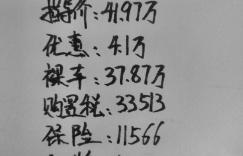 指导价:41.97万
优惠:4.1万
裸车:37.87万
购置税:33513
保险:11566